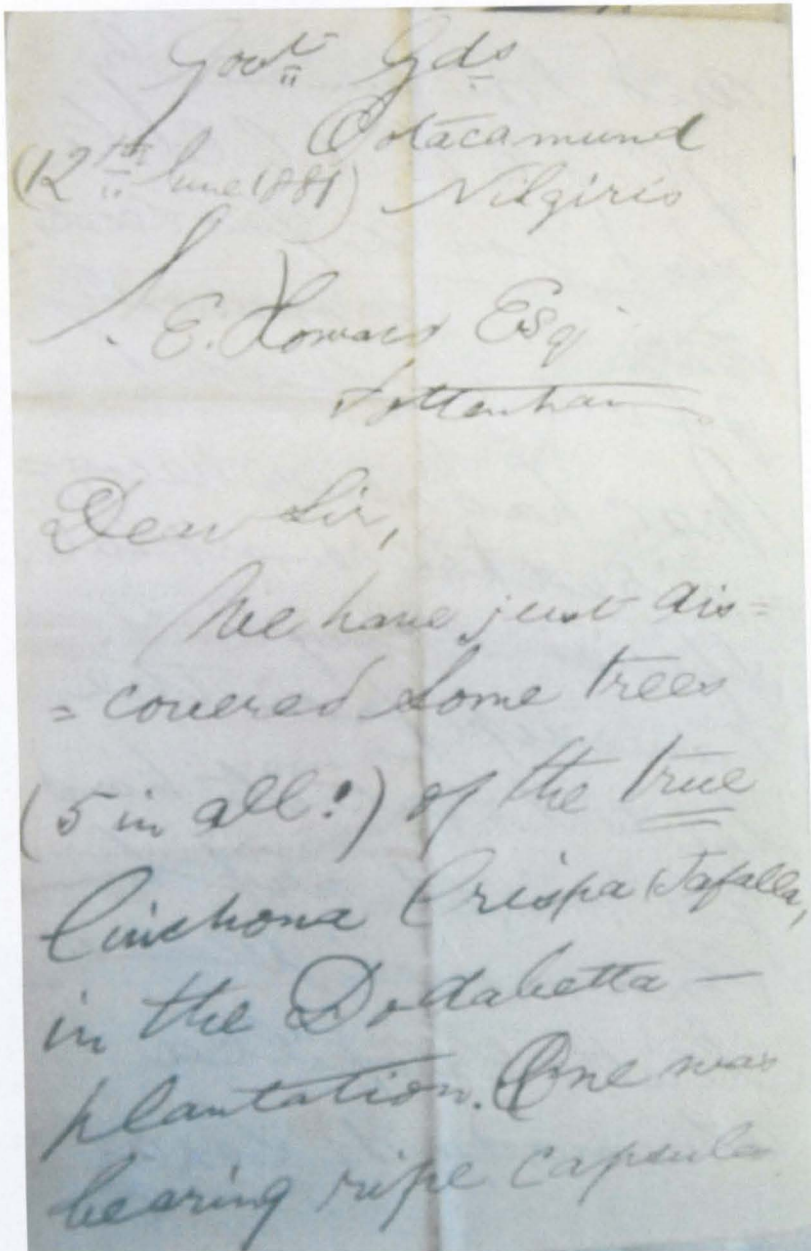 Govt. Gds
Ootacamund
(12th June 1881) Nilgiris
J. E. Howard Esqr
Tottenham
Dear Sir,
We have just dis=
=covered some trees
(5 in all!) of the true
Cinchona Crispa Tafalla,
in the Dodabetta —
plantation. One was
bearing ripe capsules